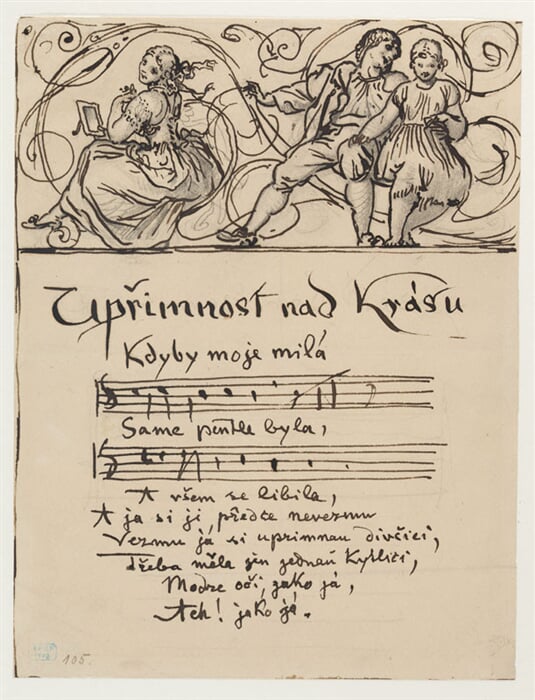 Upřimnost nad Krásu
Kdyby moje milá
Same pentle byla,
A všem se libila,
A ja si ji předce nevezmu
Vezmu já si uprimnau divčici,
třeba měla jen jednaú Kytlici,
Modre oči, jako já,
Ach! jako já.
105.